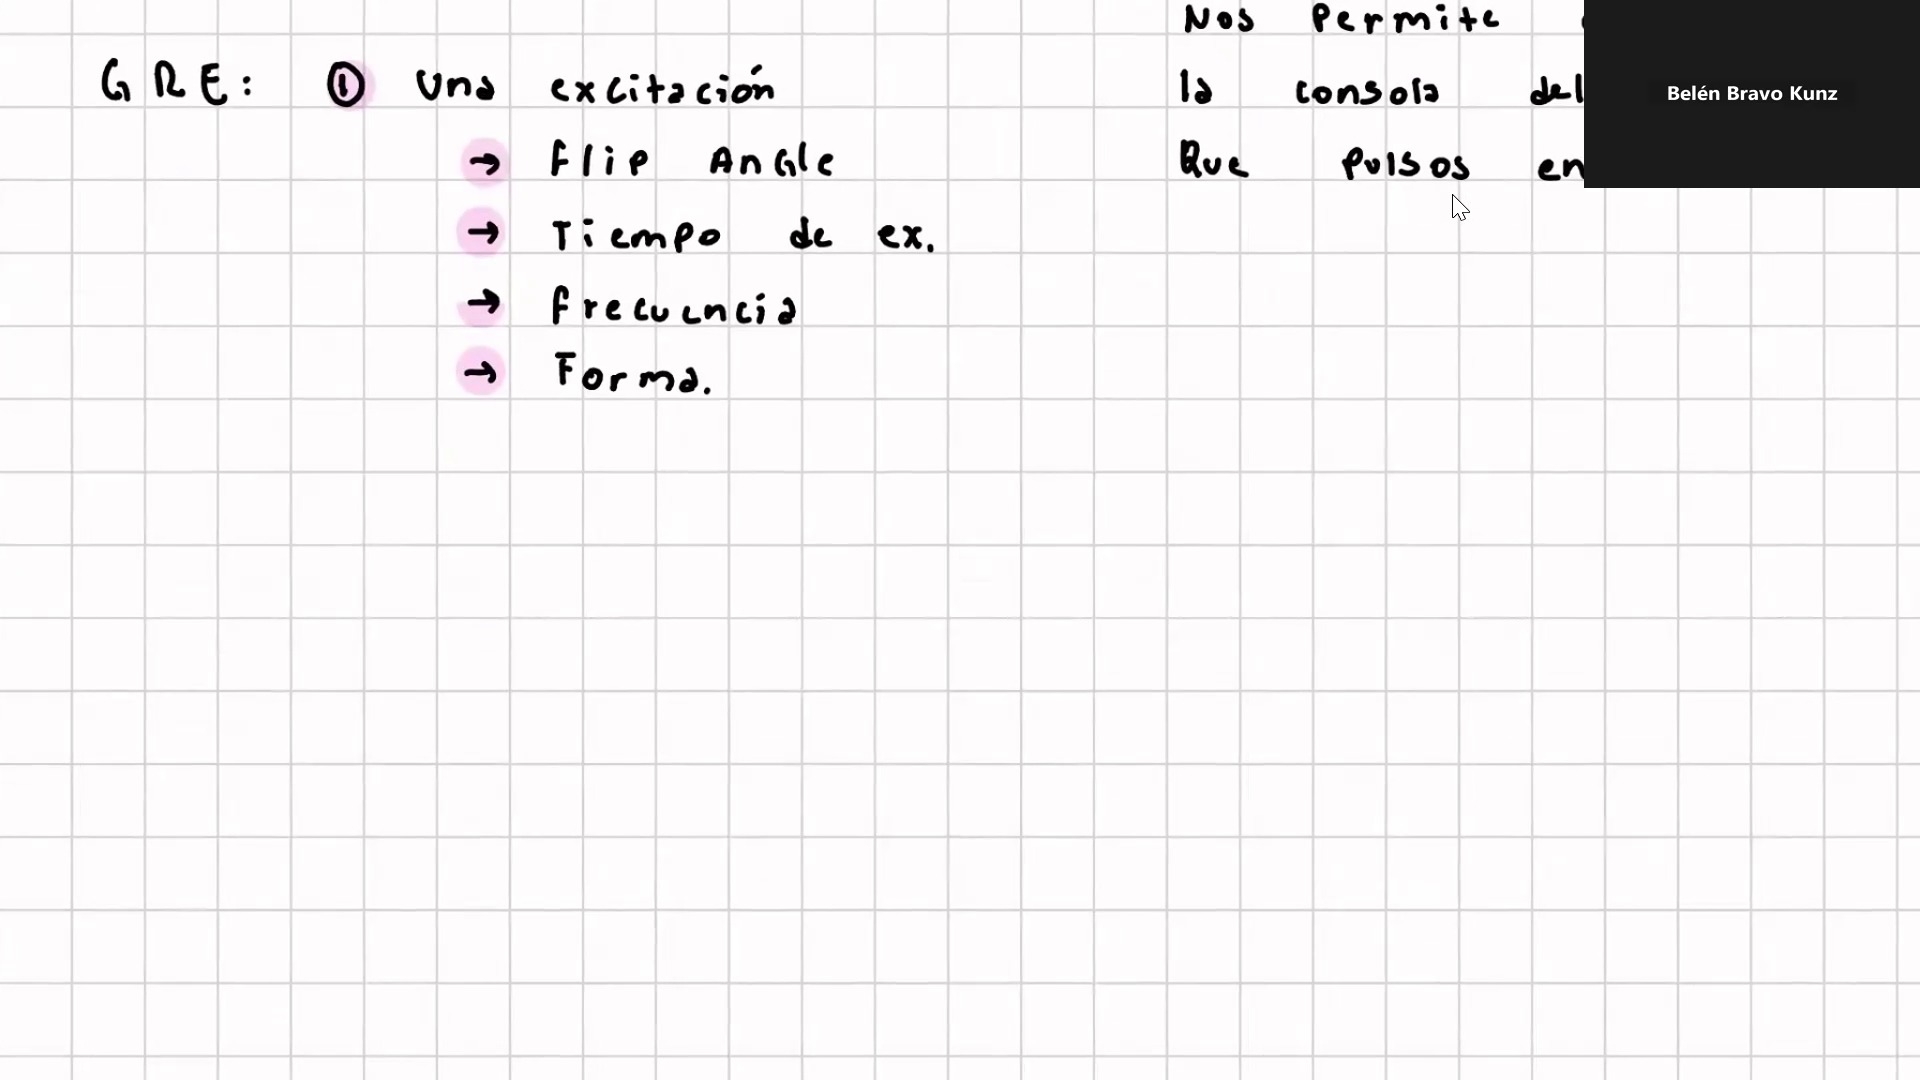 GRE: ① Una excitación
→ Flip Angle
→ Tiempo de ex.
→ Frecuencia
→ Forma.
Nos Permite
la consola del
Que pulsos en
Belén Bravo Kunz